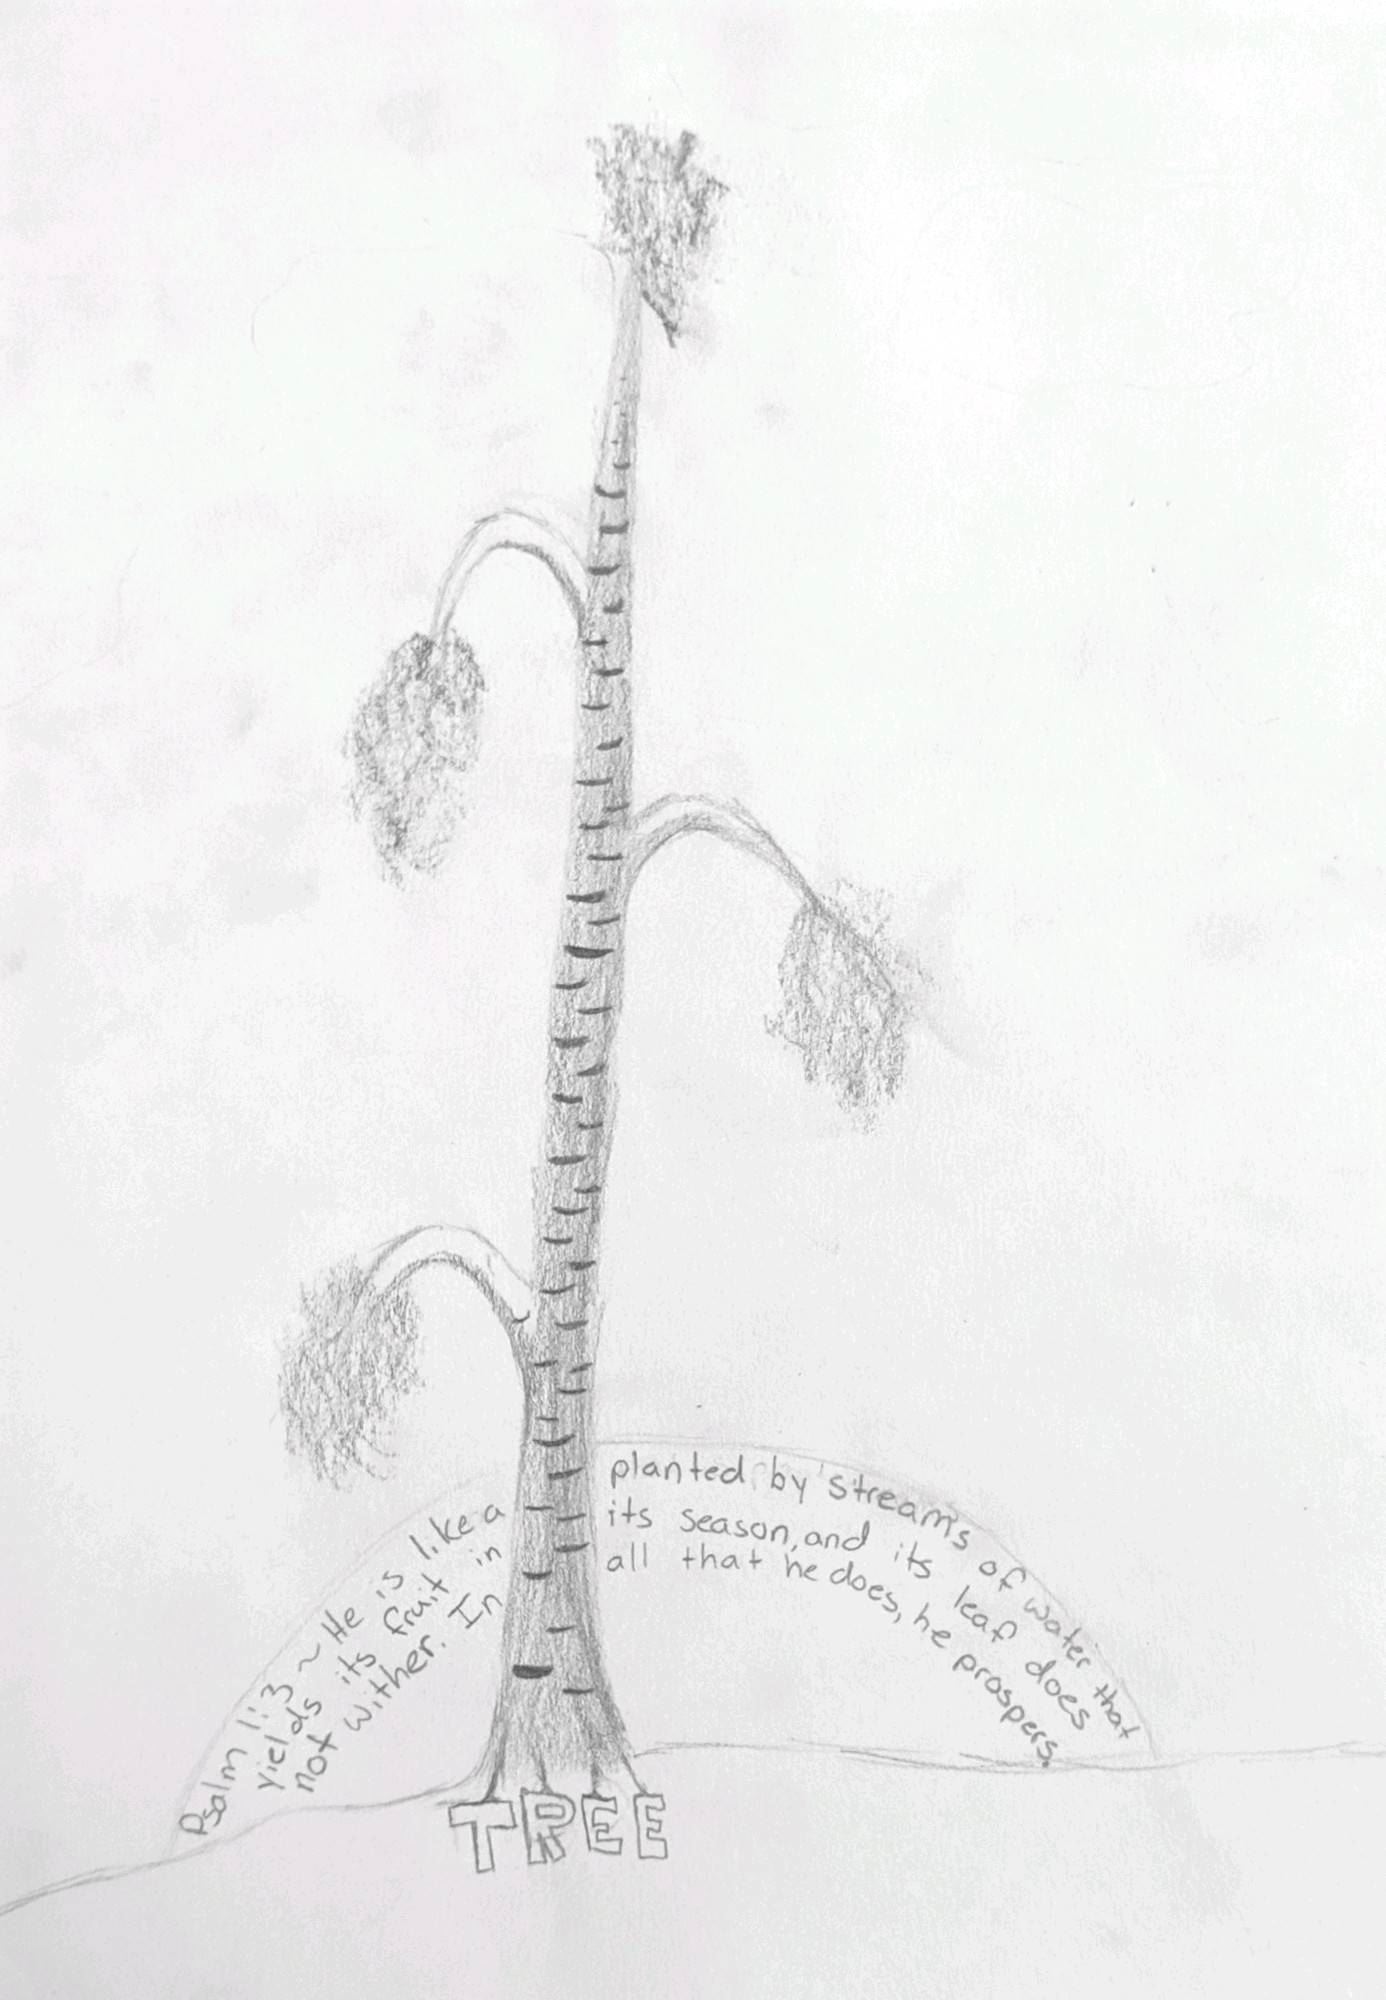 Psalm 1:3 ~ He is like a planted by streams of water that
yields its fruit in its season, and its leaf does
not wither. In all that he does, he prospers.
TREE